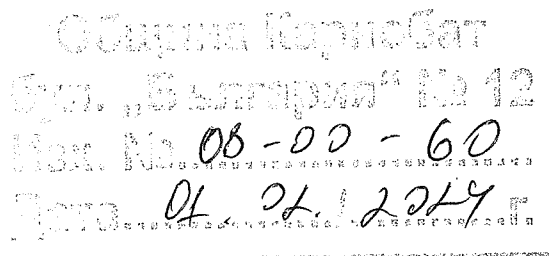 Община Карнобат
бул. „България“ № 12
Изх. № 08-00-60
Дата 01. 02. / 2024 г.